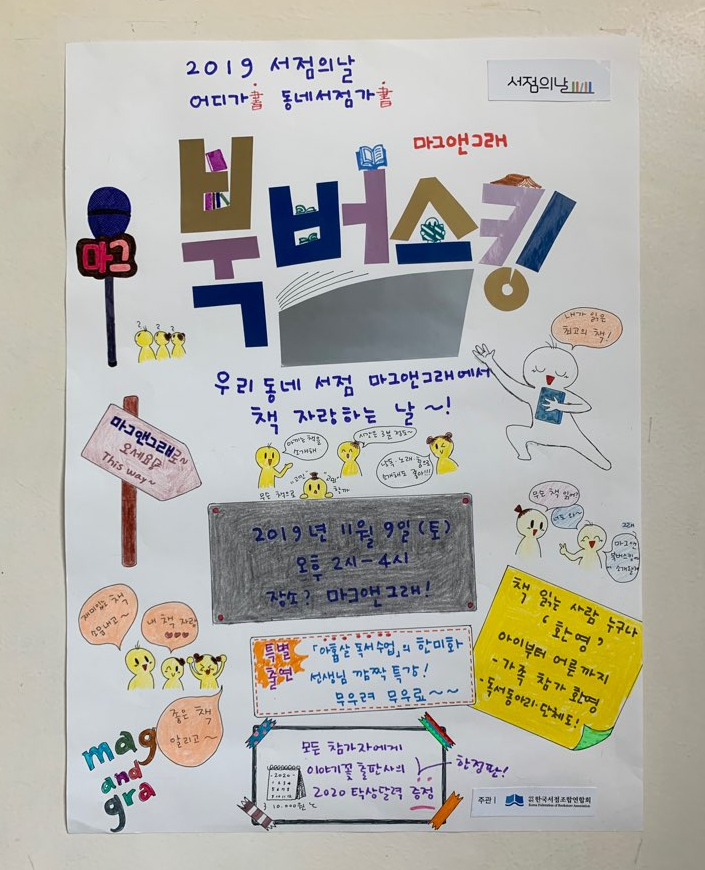 2019 서점의날
어디가書 동네서점가書
서점의날
마그앤그래
북버스킹
마그
2 2 2
내가 읽은
최고의 책!
우리 동네 서점 마그앤그래에서
책 자랑하는 날~!
마그앤그래로~
오세요
This way~
아끼는 책을
소개해
시간은 3분 정도~
낭독·노래·춤으로
소개해도 좋아!!!
무슨 책으로 "고민" "고민" 할까
2019년 11월 9일 (토)
오후 2시-4시
장소? 마그앤그래!
무슨 책 읽어?
너도 와~
그래
마그앤
북버스킹에
재미있는 책
소문내고~
내 책 자랑
좋은 책
알리고~
책 읽는 사람 누구나
'환영'
아이부터 어른까지
- 가족 참가 환영
- 독서동아리·단체도!
특별
출연
「아홉살 독서수업」의 한미화
선생님 깜짝 특강!
무우려 무우료~~
mag
and
gra
모든 참가자에게
이야기꽃 출판사의
2020 탁상달력 증정
한정판!
-2020-
10,000원
주관 | 한국서점조합연합회
Korea Federation of Bookstore Association